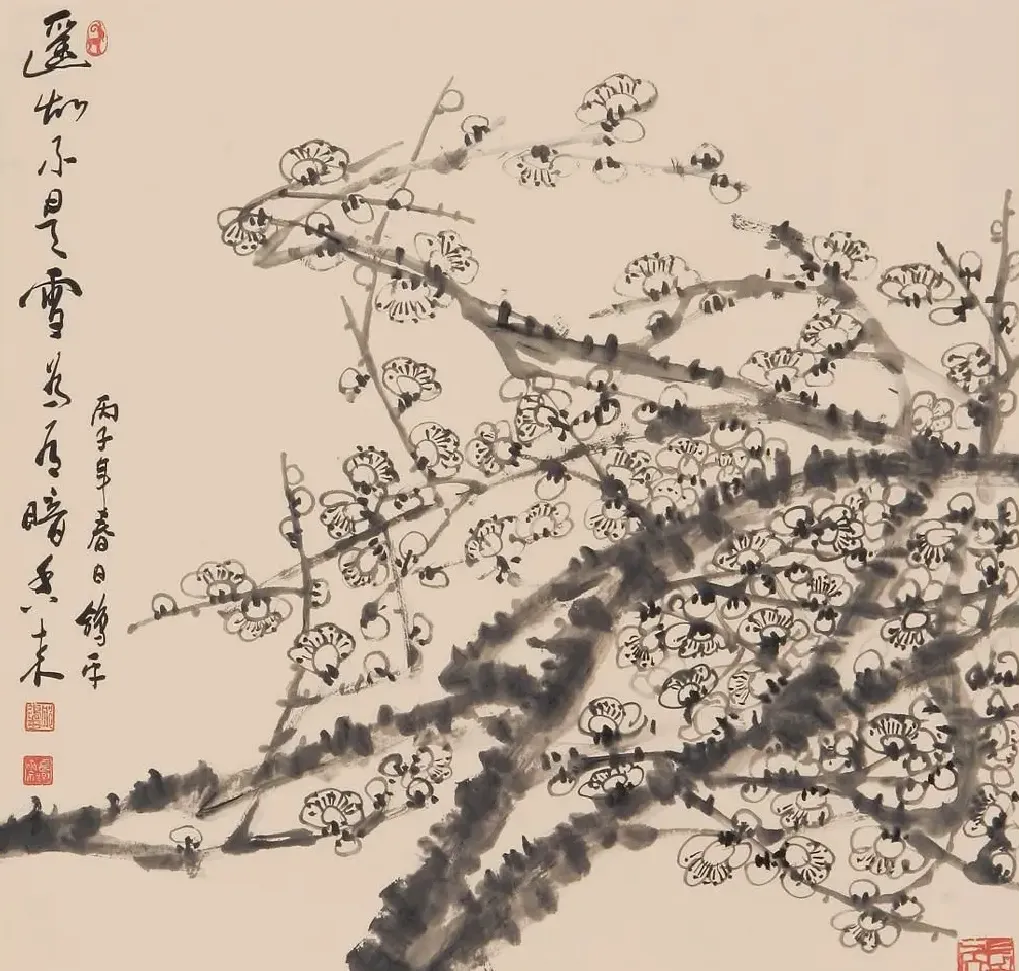 遥知不是雪为有暗香来
丙子年春日鸿平